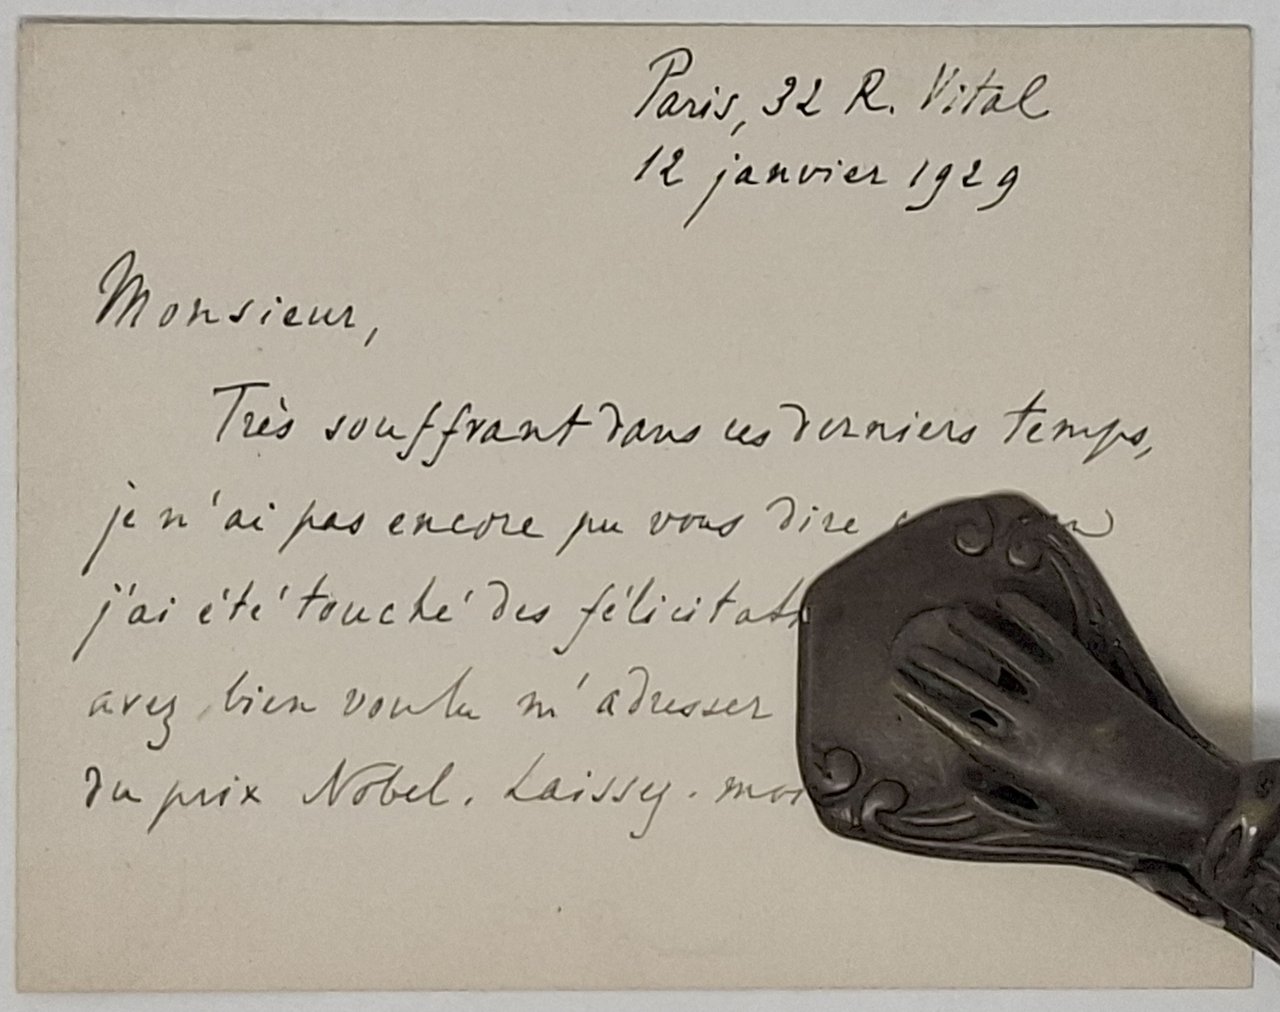 Paris, 32 R. Vital
12 janvier 1929
Monsieur,
Très souffrant dans ces derniers temps,
je n'ai pas encore pu vous dire
j'ai été touché des
avez bien voulu m'adresser
du prix Nobel. Laissez-moi